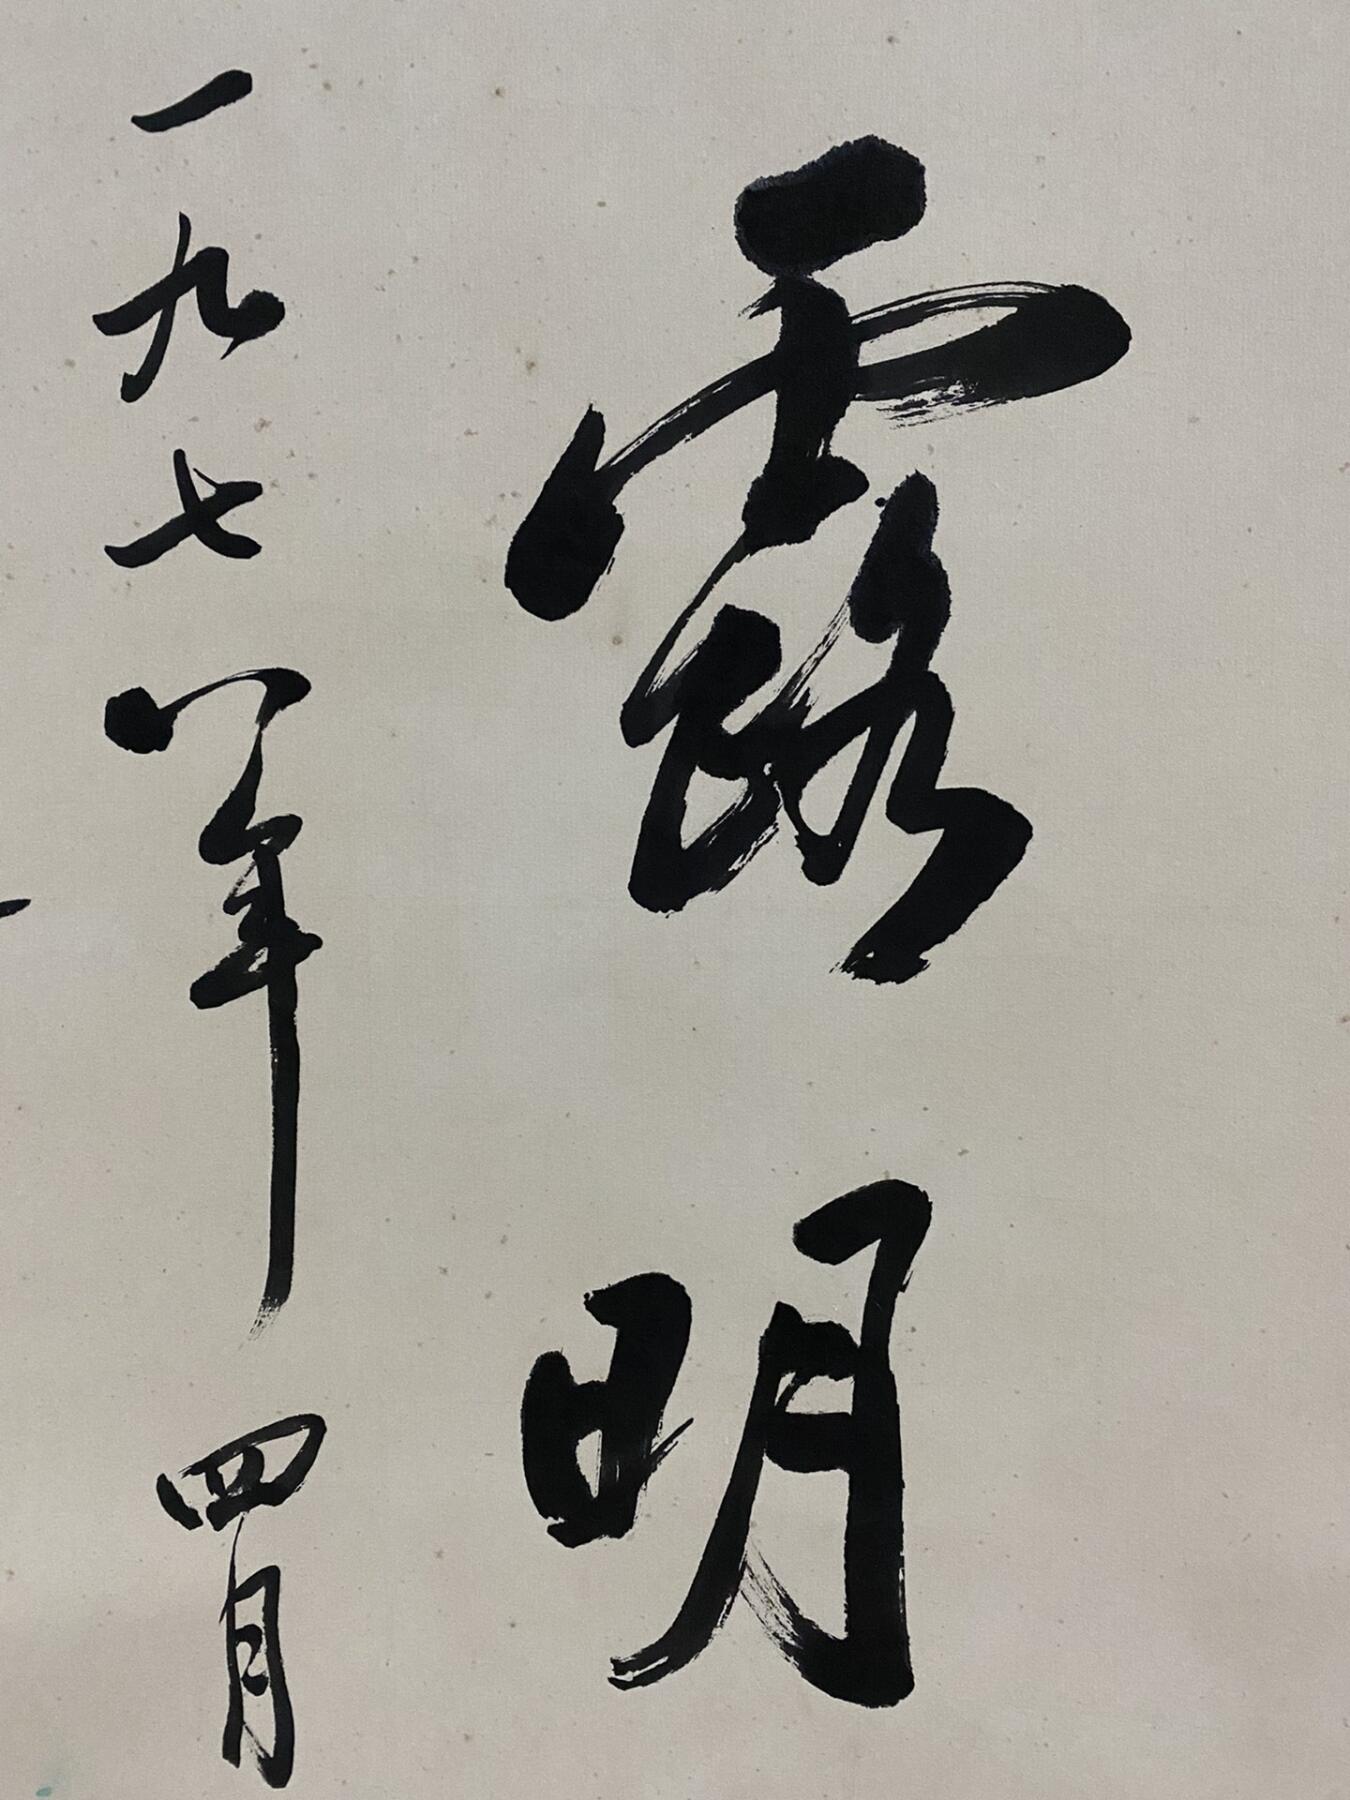 露明
一九七八年四月